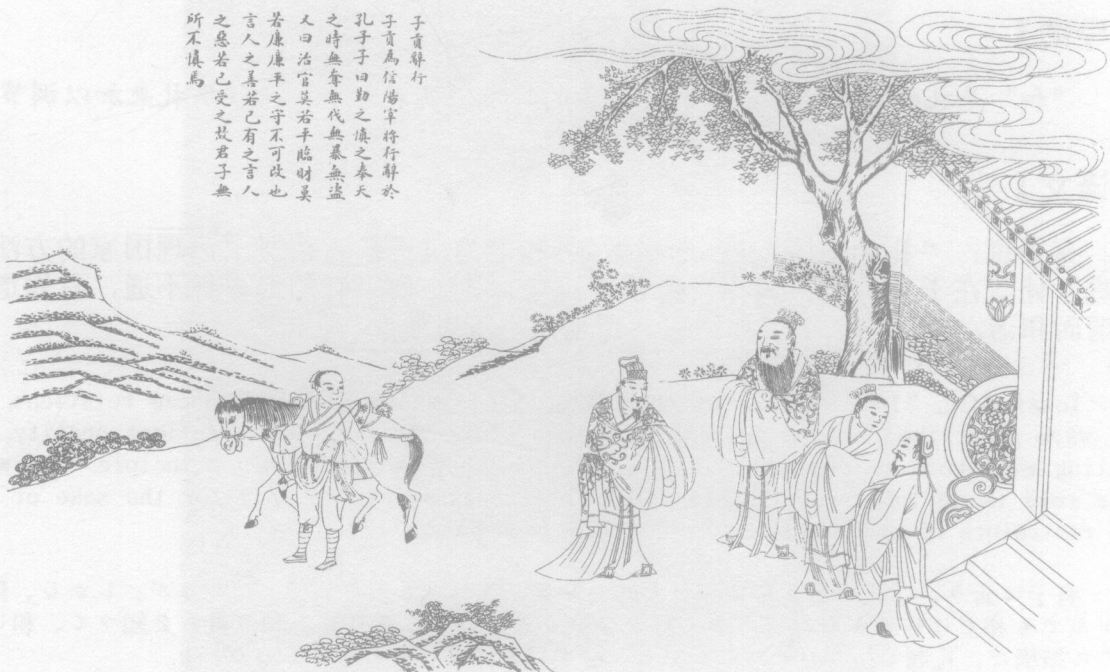 子貢辭行
子貢為信陽宰將行辭於
孔子子曰勤之慎之奉天
之時無奪無伐無暴無盜
又曰治官莫若平臨財莫
若廉廉平之守不可改也
言人之善若己有之言人
之惡若己受之故君子無
所不慎焉